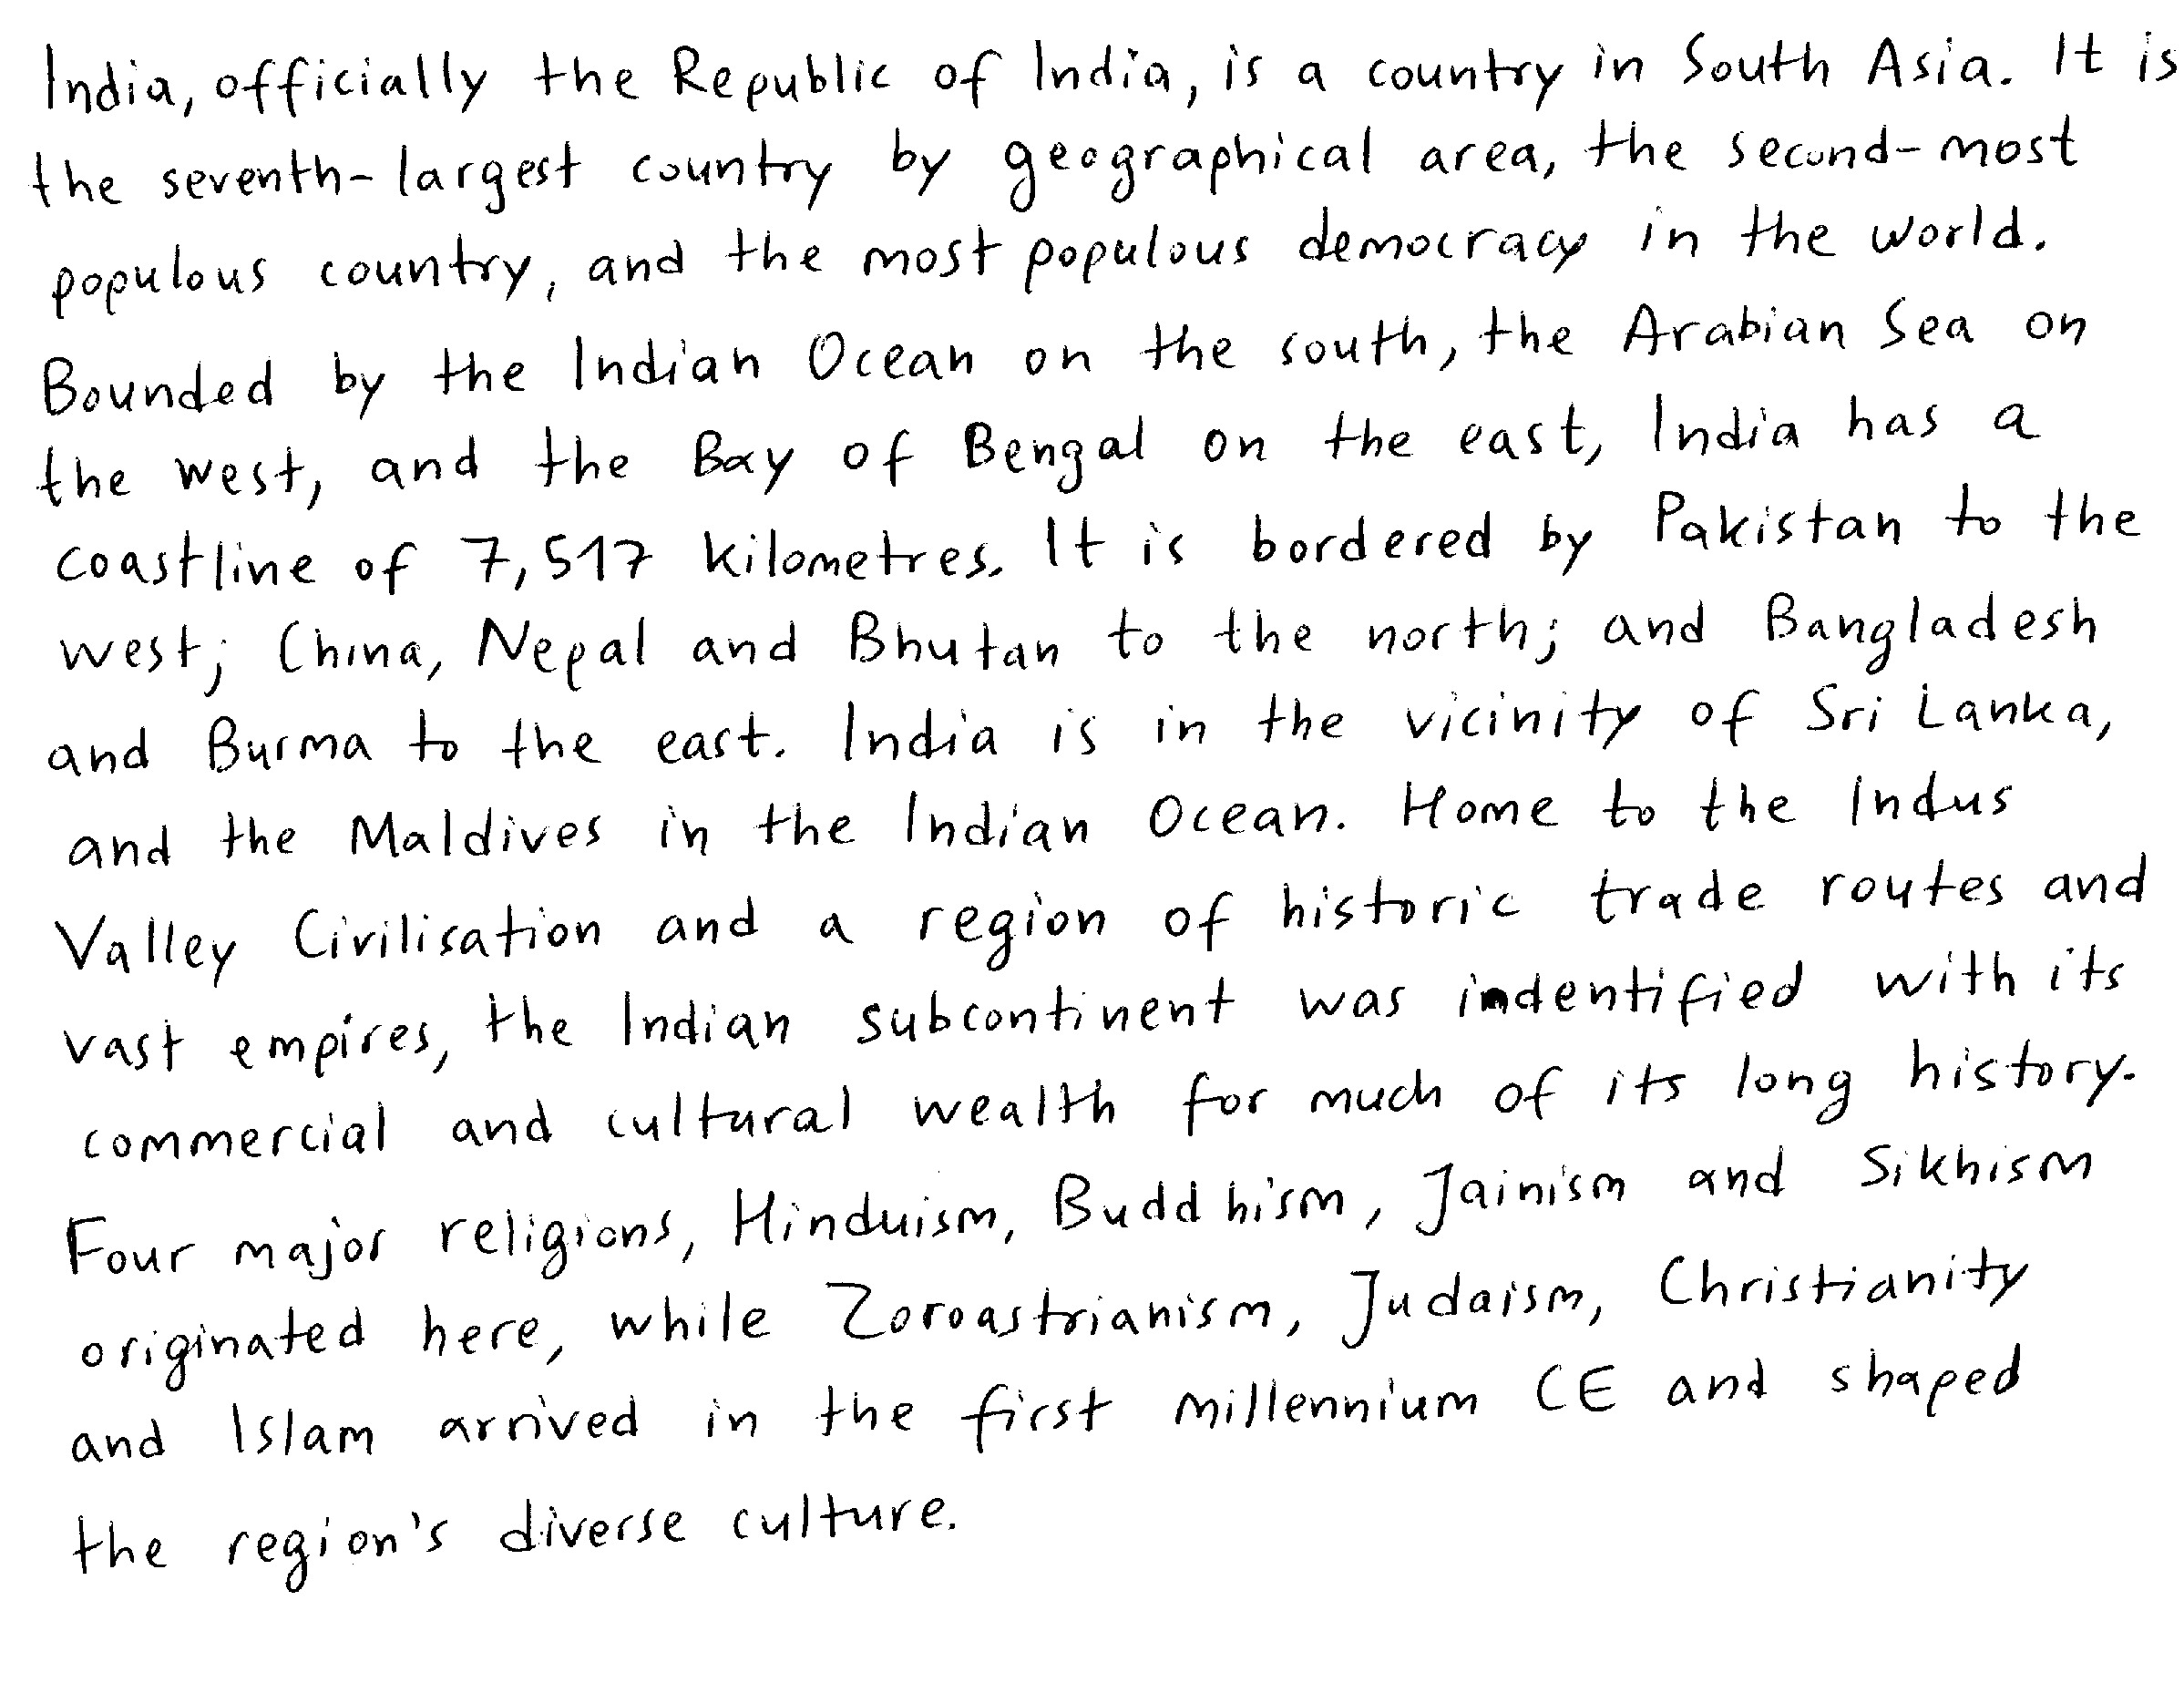 India, officially the Republic of India, is a country in South Asia. It is
the seventh-largest country by geographical area, the second-most
populous country, and the most populous democracy in the world.
Bounded by the Indian Ocean on the south, the Arabian Sea on
the west, and the Bay of Bengal on the east, India has a
coastline of 7,517 kilometres. It is bordered by Pakistan to the
west; China, Nepal and Bhutan to the north; and Bangladesh
and Burma to the east. India is in the vicinity of Sri Lanka,
and the Maldives in the Indian Ocean. Home to the Indus
Valley Civilisation and a region of historic trade routes and
vast empires, the Indian subcontinent was indentified with its
commercial and cultural wealth for much of its long history.
Four major religions, Hinduism, Buddhism, Jainism and Sikhism
originated here, while Zoroastrianism, Judaism, Christianity
and Islam arrived in the first millennium CE and shaped
the region's diverse culture.